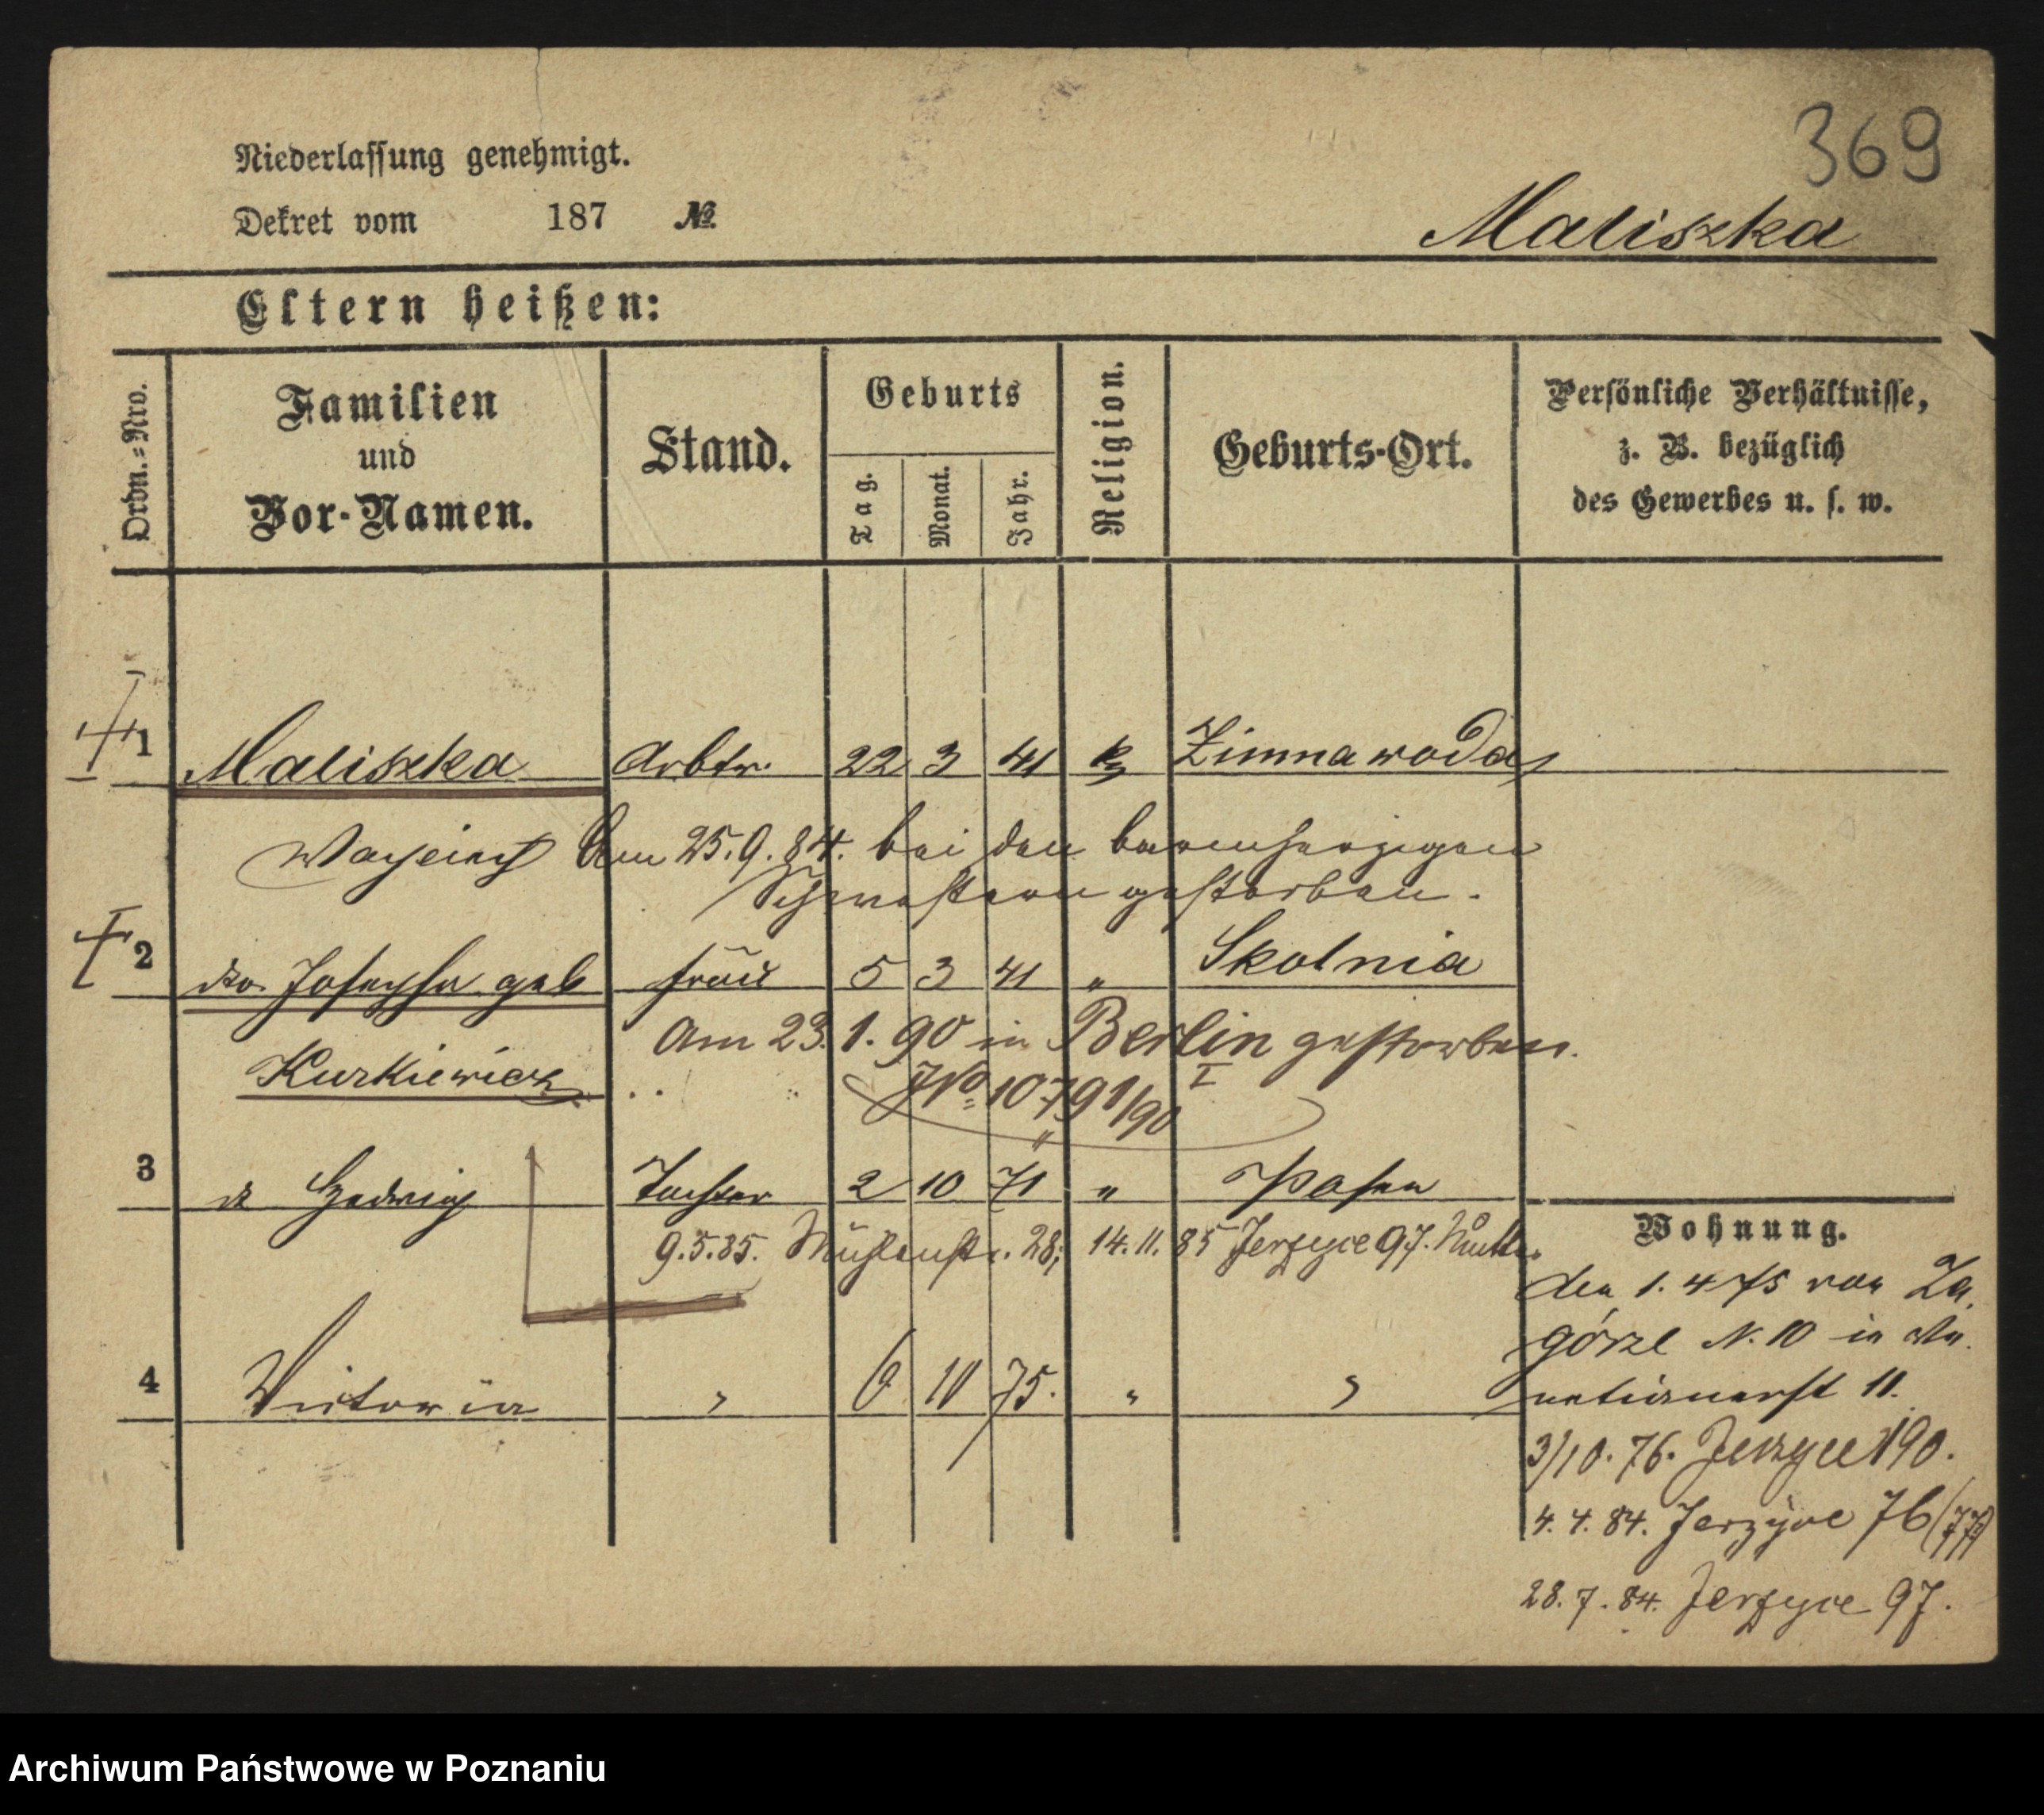 369
Niederlassung genehmigt.
Dekret vom 187 №
Maliszka
Eltern heißen:
Ordn.-Nro.
Familien
und
Vor-Namen.
Stand.
Geburts
Tag.
Monat.
Jahr.
Religion.
Geburts-Ort.
Persönliche Verhältnisse,
z. B. bezüglich
des Gewerbes u. s. w.
1 Maliszka Arbtr. 22 3 41 k Zimnawoda
Am 25.9.84. bei den barmherzigen
Schwestern gestorben.
2 do. Josepha geb Frau 5 3 41 " Skolnia
Kurkiewicz
Am 23.1.90 in Berlin gestorben.
JNo 10791/90 I
3 d Hedwig Tochter 2 10 71 " Posen
9.5.85. Mühlenstr. 28; 14.11.85 Jerzyce 97.
4 Victoria " 6 10 75. " "
Wohnung.
den 1. 4 75 von Za
górze N. 10 in
11.
3/10. 76. Jerzyce 190.
4. 4. 84. Jerzyce 76 (77)
28. 7. 84. Jerzyce 97.
Archiwum Państwowe w Poznaniu